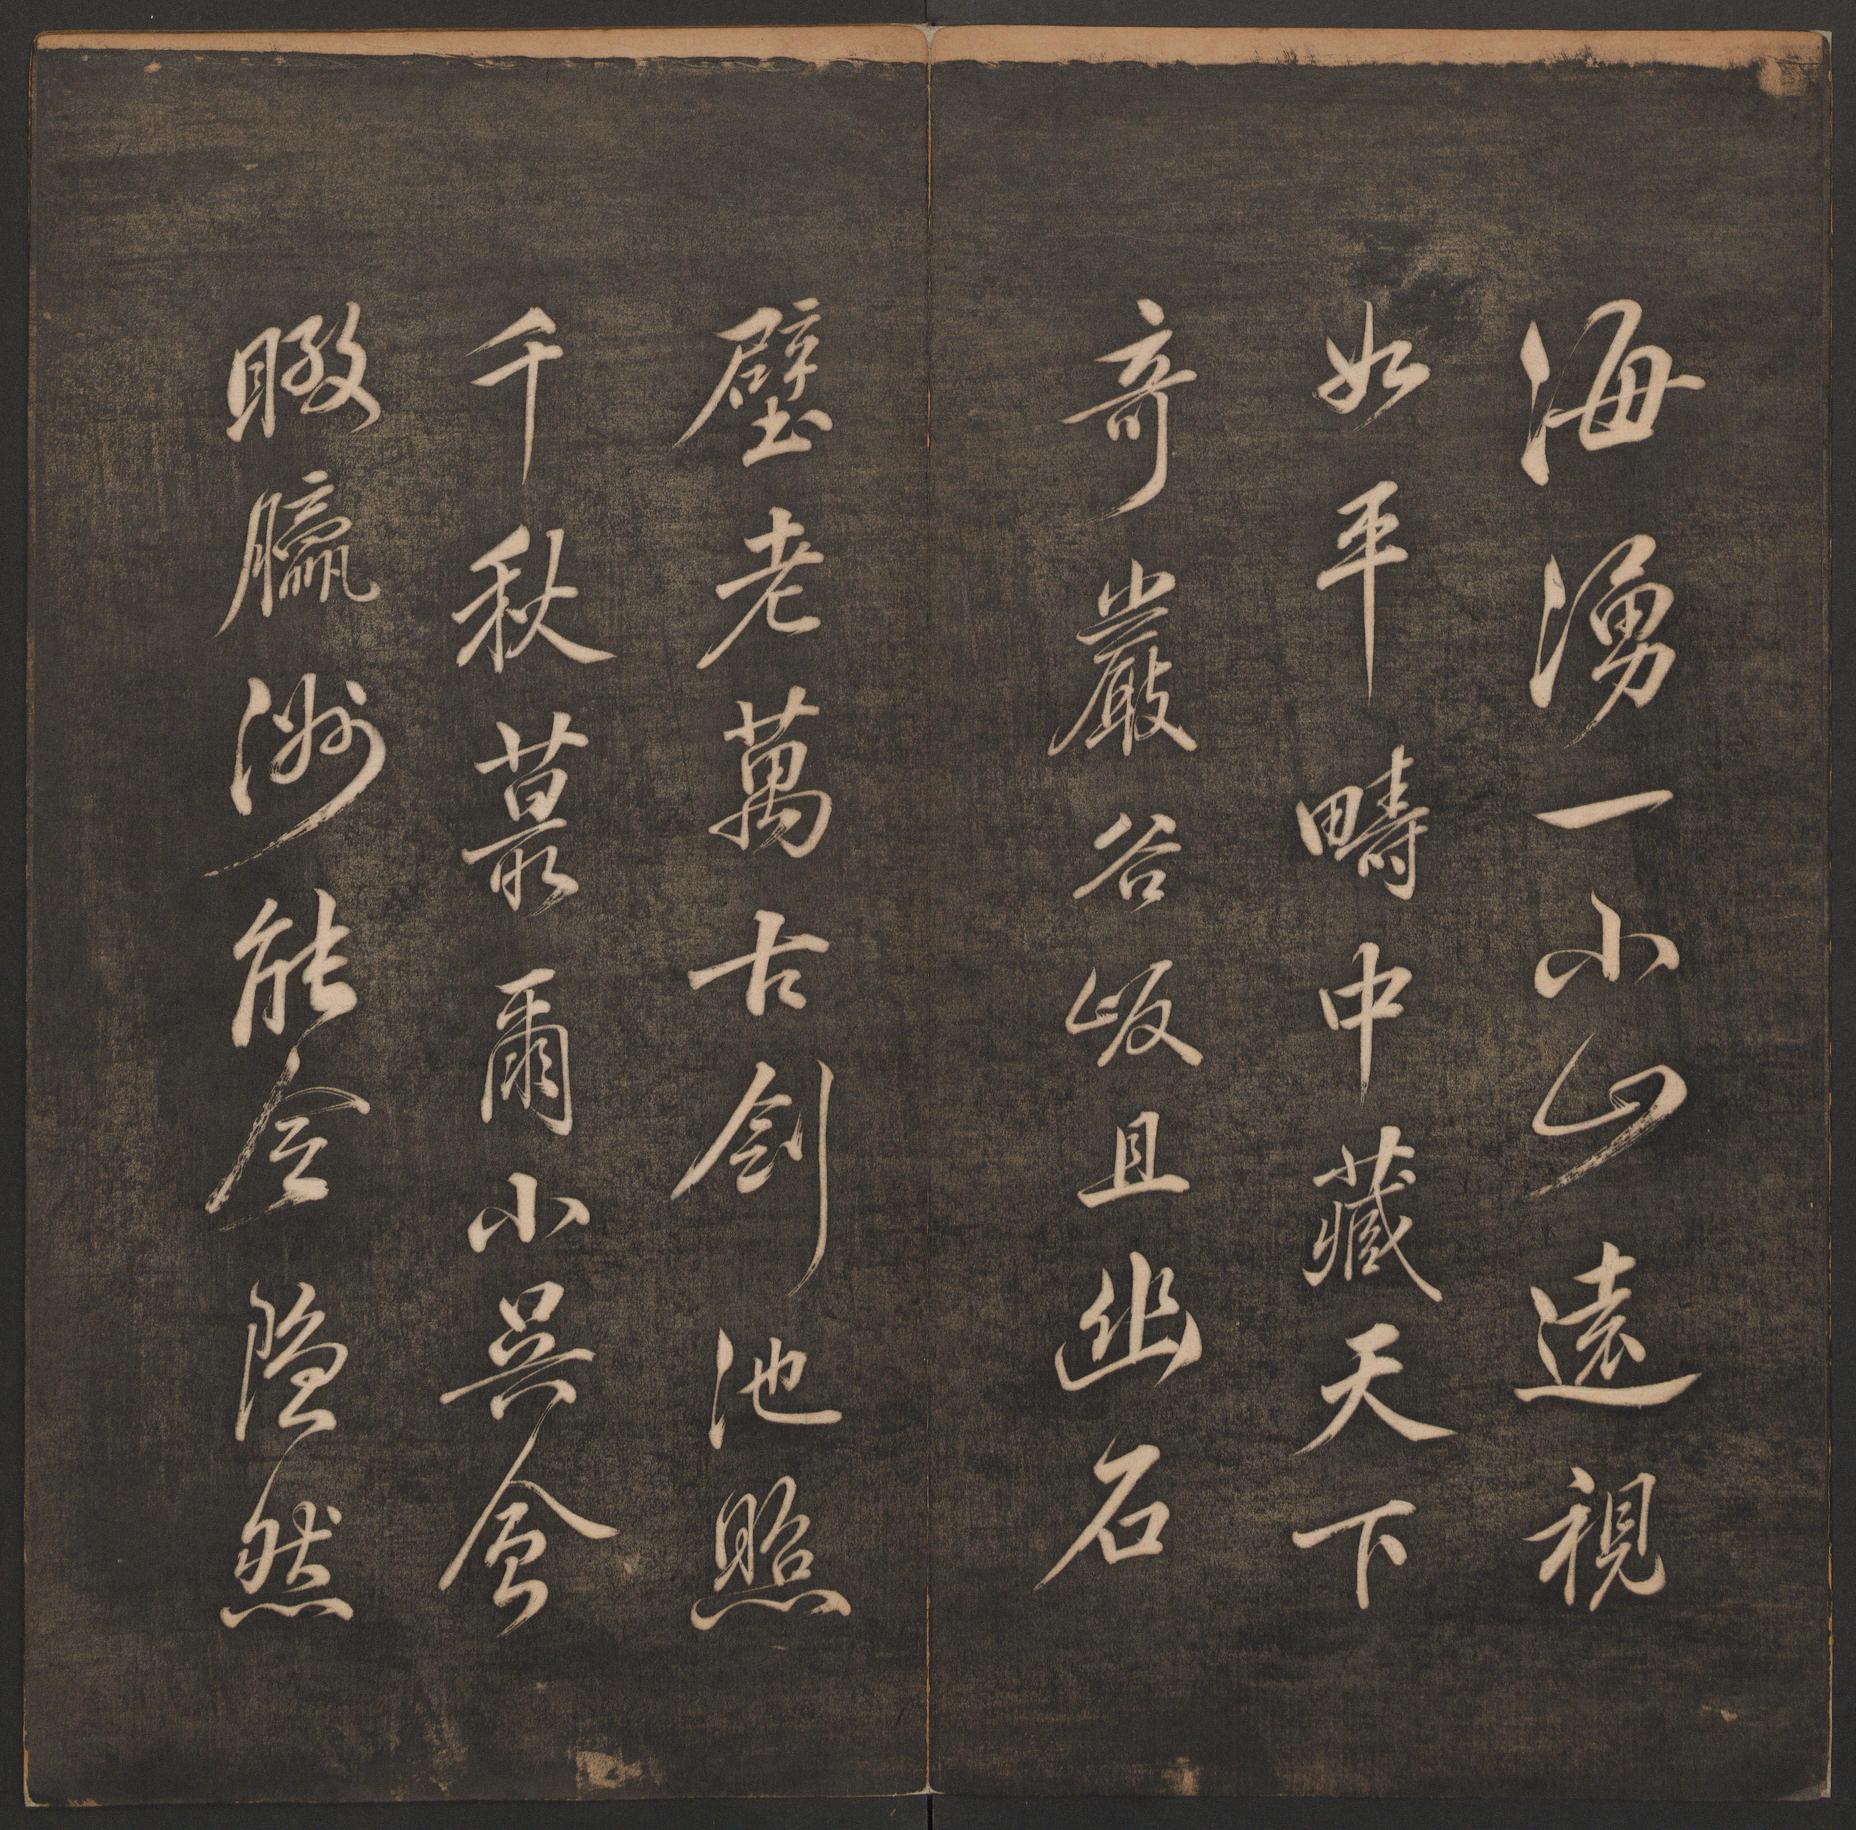 海湧一小山遠視
如平疇中藏天下
奇巖谷岅且幽石
壁老萬古劍池照
千秋蕞爾小吳會
瞰臝洲能令隱然